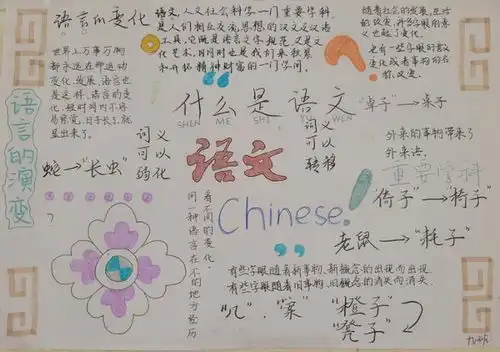 语言的变化
语文,人文社会科学一门重要学科,
是人们相互交流思想的汉文及汉语
工具。它既是语言文字规范又是文
化艺术,同时也是我们来积累
和开拓精神财富的一门学问。
随着社会的发展,生活
的改变,许多字眼的意
义也起了变化。
也有一些字眼的意义
变化或者事物的名
称,改变。
世界上万事万物
都永远在那运动
变化、发展,语言也
是这样。语言的变
化,短时间内不容
易察觉,日子长了,就
显出来了。
语言的演变
什么是语文
SHEN ME SHI YU WEN
“卓子”→桌子
词义
可以
弱化
词义
可以
转移
语文
外来的事物带来了
外来语。
重要学科
蛇→“长虫”
“倚子”→“椅子”
看不同的变化。
同一种语言在不同的地方经历
Chinese.
老鼠→“耗子”
有些字眼随着新事物、新概念的出现而出现。
有些字眼随着旧事物、旧概念的消失而消失。
“橙子”
“凳子”